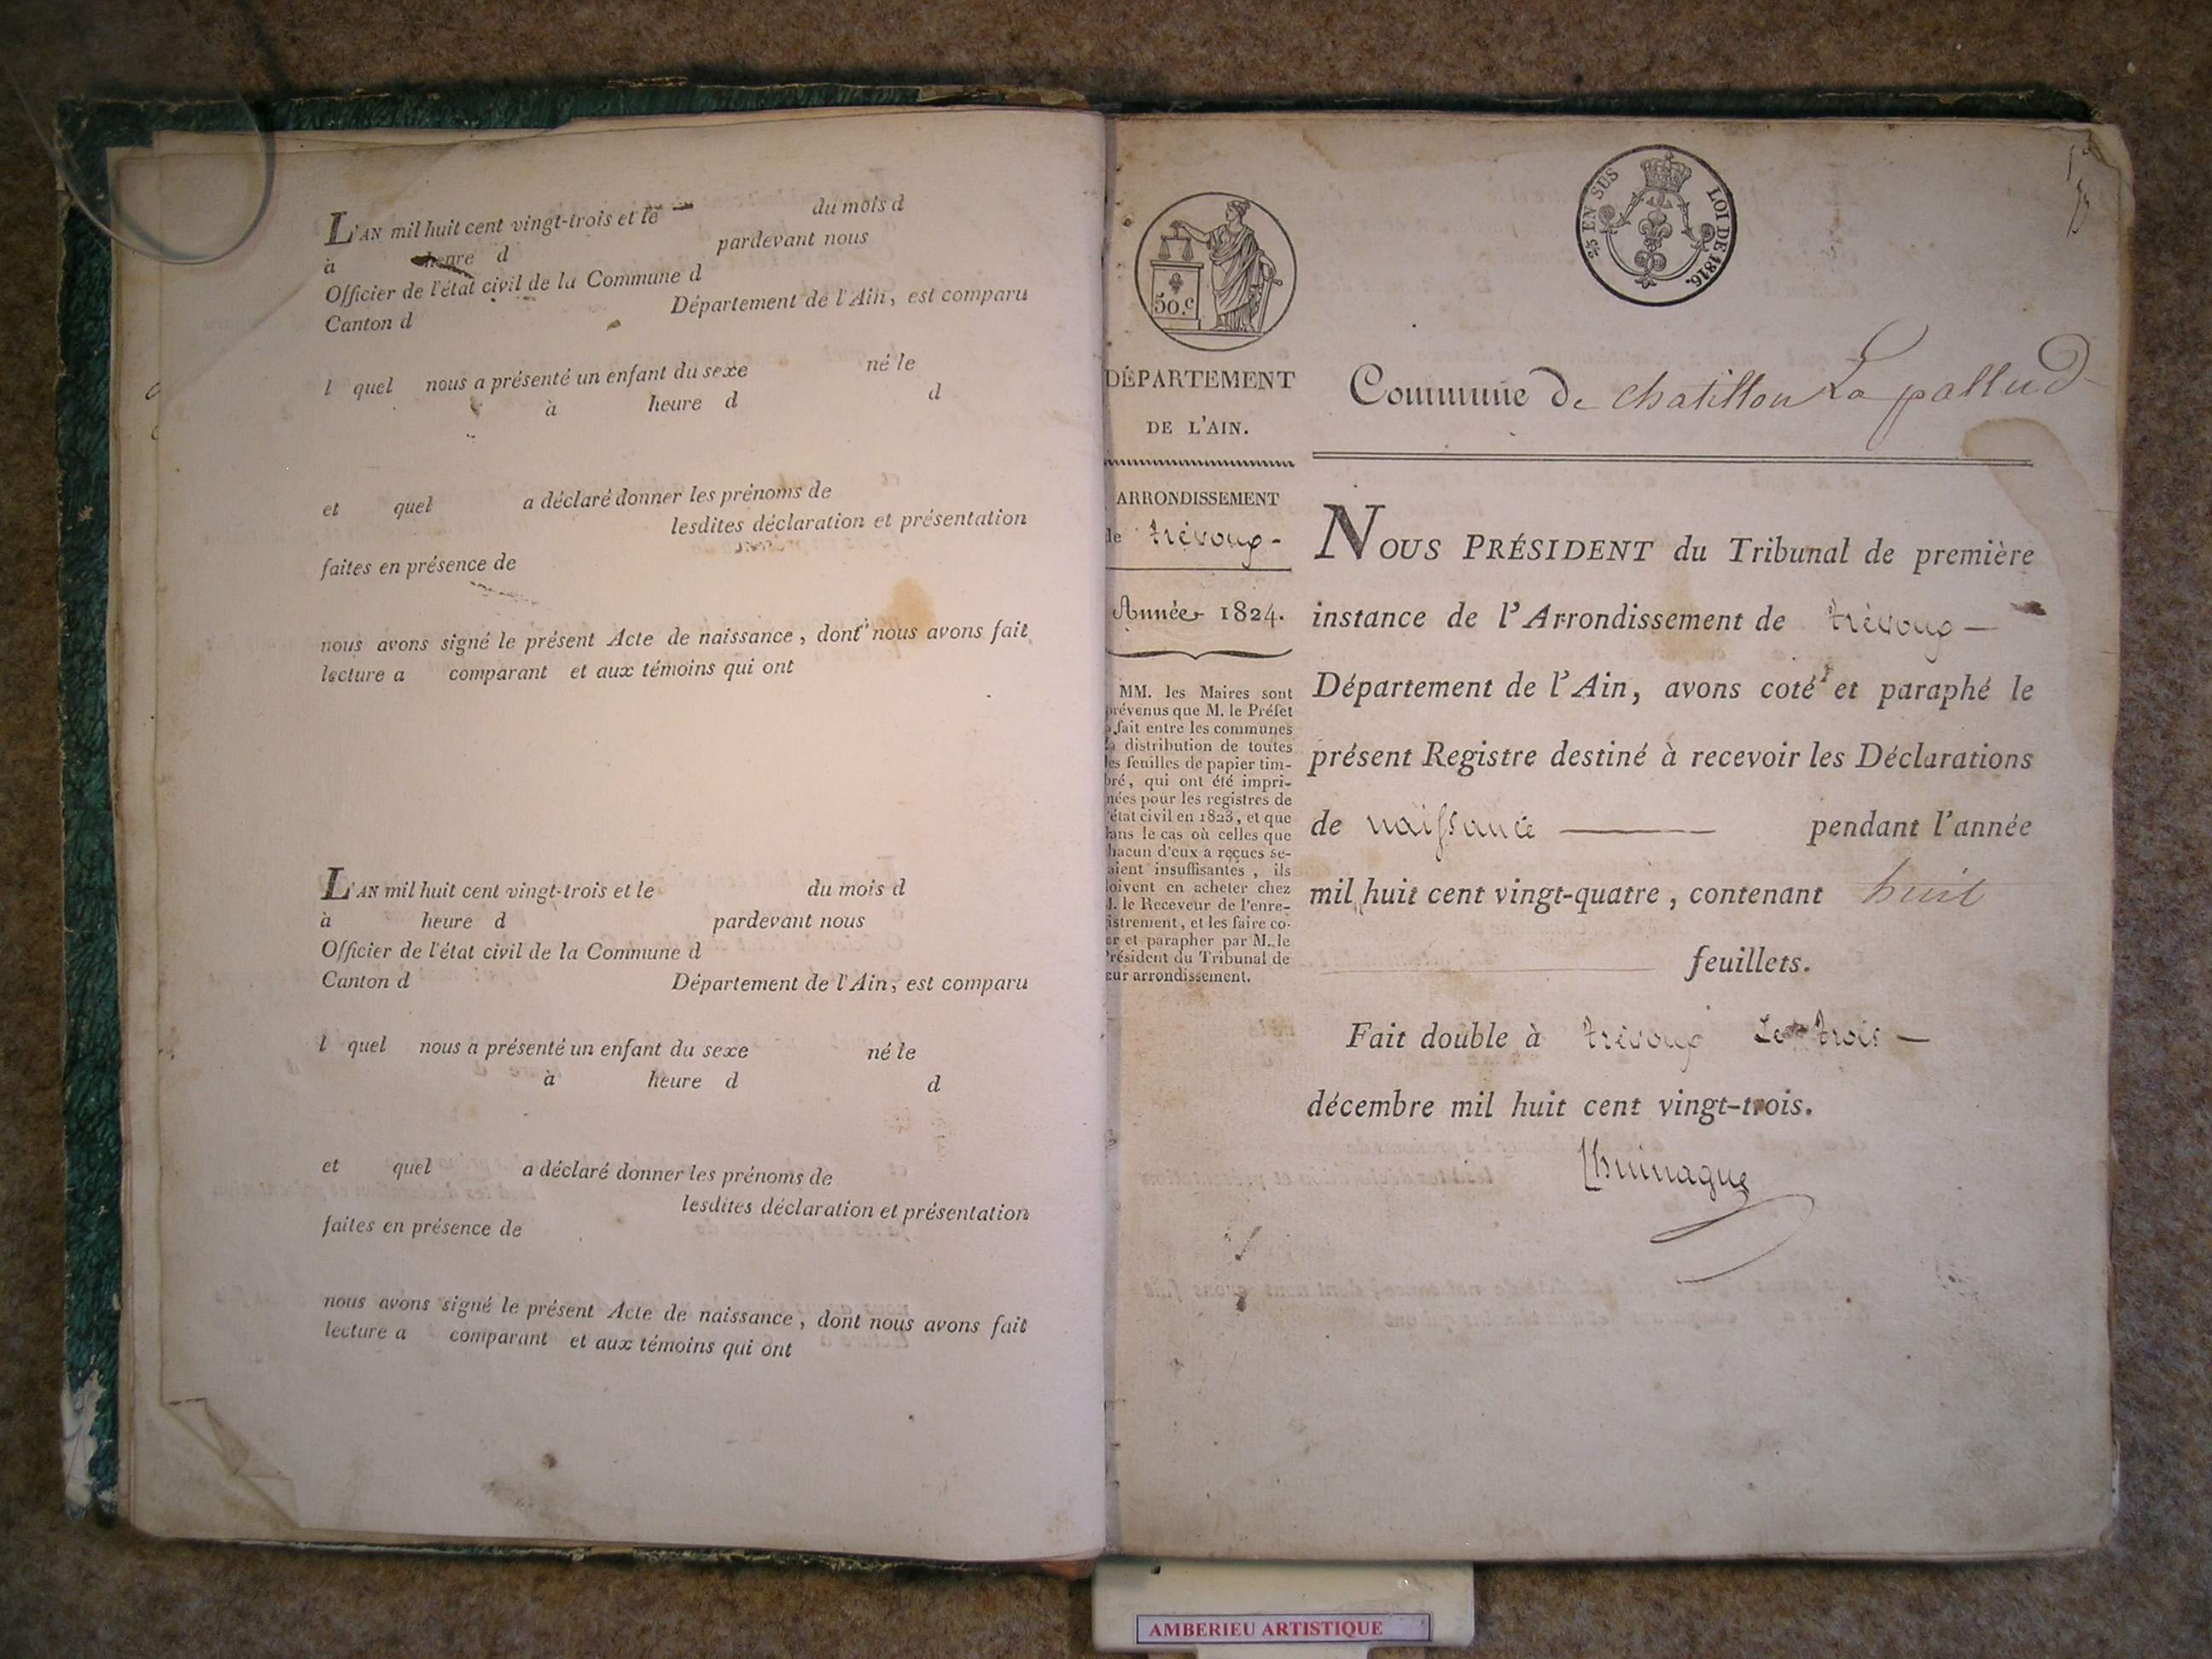 L'AN mil huit cent vingt-trois et le du mois d
à heure d pardevant nous
Officier de l'état civil de la Commune d
Canton d Département de l'Ain, est comparu
l quel nous a présenté un enfant du sexe né le
à heure d d
et quel a déclaré donner les prénoms de
lesdites déclaration et présentation
faites en présence de
nous avons signé le présent Acte de naissance, dont nous avons fait
lecture a comparant et aux témoins qui ont
L'AN mil huit cent vingt-trois et le du mois d
à heure d pardevant nous
Officier de l'état civil de la Commune d
Canton d Département de l'Ain, est comparu
l quel nous a présenté un enfant du sexe né le
à heure d d
et quel a déclaré donner les prénoms de
lesdites déclaration et présentation
faites en présence de
nous avons signé le présent Acte de naissance, dont nous avons fait
lecture a comparant et aux témoins qui ont
50.c
DÉPARTEMENT
DE L'AIN.
ARRONDISSEMENT
de trévoux-
Année 1824.
MM. les Maires sont
prévenus que M. le Préfet
a fait entre les communes
la distribution de toutes
les feuilles de papier tim-
bré, qui ont été impri-
mées pour les registres de
l'état civil en 1823, et que
dans le cas où celles que
chacun d'eux a reçues se-
raient insuffisantes, ils
doivent en acheter chez
M. le Receveur de l'enre-
gistrement, et les faire co-
ter et parapher par M. le
Président du Tribunal de
leur arrondissement.
EN SUS LOI DE 1816.
Commune De chatillon La pallud
NOUS PRÉSIDENT du Tribunal de première
instance de l'Arrondissement de trévoux —
Département de l'Ain, avons coté et paraphé le
présent Registre destiné à recevoir les Déclarations
de naissance — pendant l'année
mil huit cent vingt-quatre, contenant huit
feuillets.
Fait double à trévoux Le trois —
décembre mil huit cent vingt-trois.
AMBERIEU ARTISTIQUE